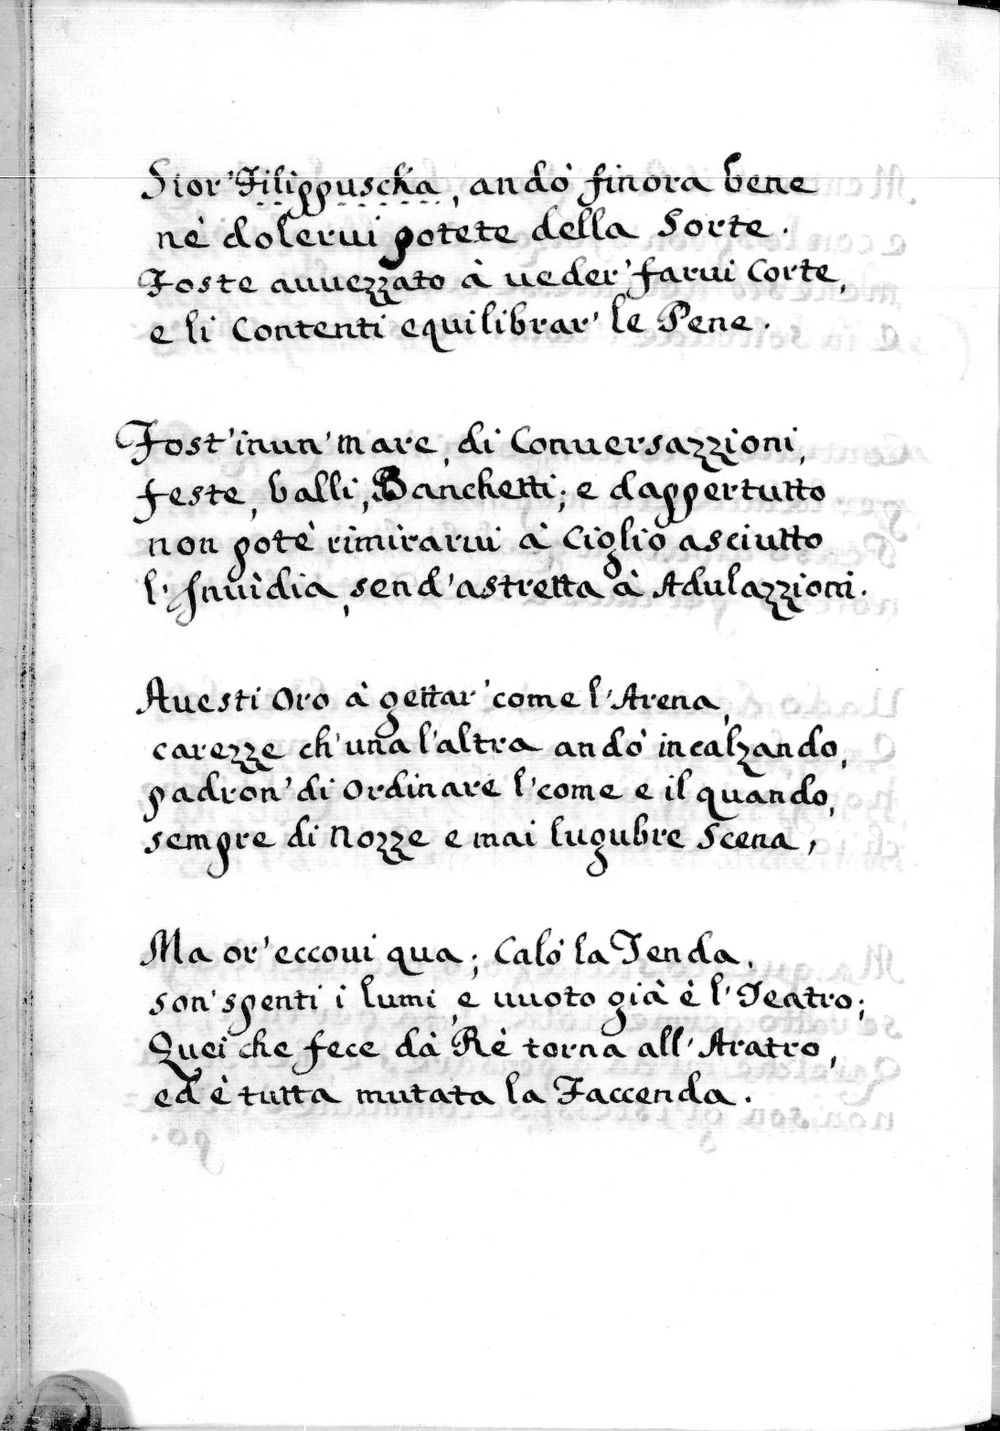 Sior' Filippuscka, andò finora bene
nè dolervi potete della Sorte.
Foste avvezzato à veder' farvi Corte,
e li Contenti equilibrar' le Pene.
Fost' inun' mare, di Conversazzioni,
feste, balli, Banchetti; e dappertutto
non potè rimirarvi à Ciglio asciutto
l'Invidia, send' astretta à Adulazzioni.
Avesti Oro à gettar' come l'Arena,
carezze ch'una l'altra andò incalzando,
padron' di Ordinare l'come e il quando,
sempre di Nozze e mai lugubre Scena,
Ma or' eccovi qua; Calò la Tenda,
son' spenti i lumi, e vuoto già è l'Teatro;
Quei che fece dà Rè torna all'Aratro,
ed è tutta mutata la Faccenda.